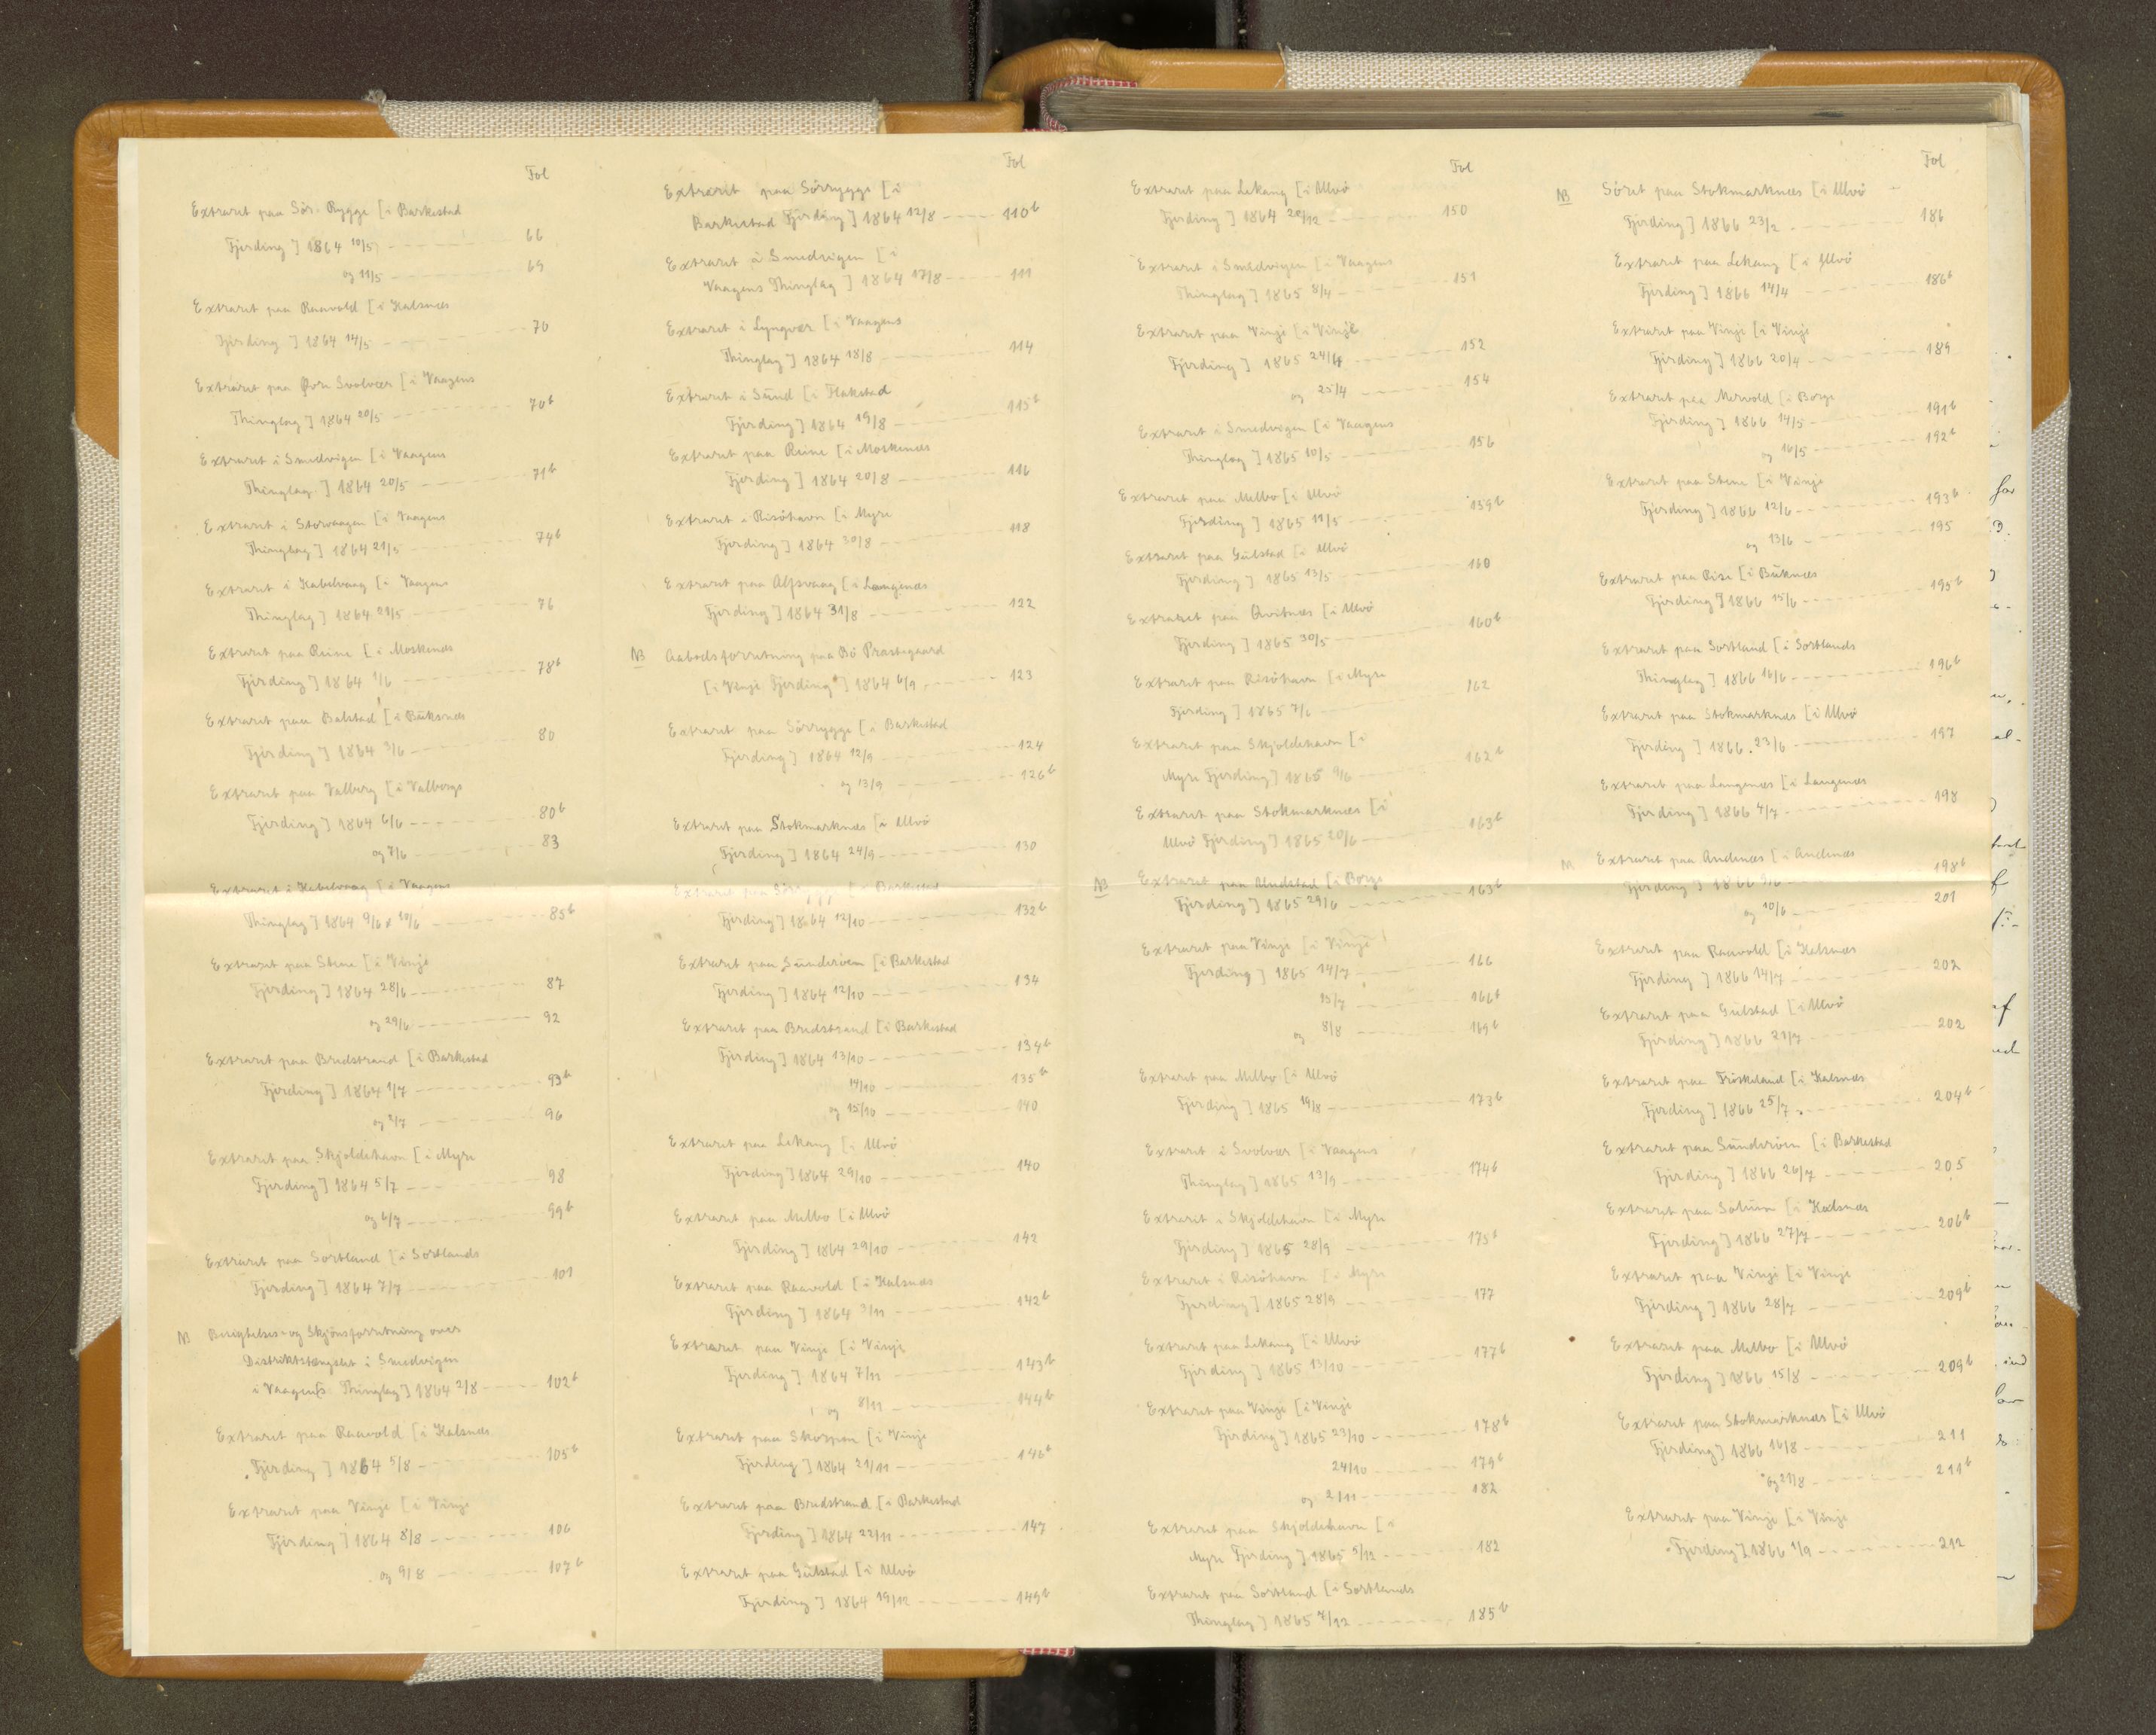 Fol
Extraret paa Sör-Rygge [i Barkestad
Fjerding] 1864 10/5 - - - 66
og 11/5 - - - 69
Extraret paa Raavold [i Hadsnæs
Fjerding] 1864 14/5 - - - 70
Extraret paa Svolvær [i Vaagens
Thinglag] 1864 20/5 - - - 70b
Extraret i Smedvigen [i Vaagens
Thinglag] 1864 20/5 - - - 71b
Extraret i Storvaagen [i Vaagens
Thinglag] 1864 21/5 - - - 74b
Extraret i Kabelvaag [i Vaagens
Thinglag] 1864 21/5 - - - 76
Extraret paa Reine [i Moskenæs
Fjerding] 1864 1/6 - - - 78b
Extraret paa Balstad [i Büksnæs
Fjerding] 1864 3/6 - - - 80
Extraret paa Valberg [i Valbergs
Fjerding] 1864 6/6 - - - 80b
og 7/6 - - - 83
Extraret i Kabelvaag [i Vaagens
Thinglag] 1864 9/6 & 10/6 - - - 85b
Extraret paa Stene [i Vinje
Fjerding] 1864 28/6 - - - 87
og 29/6 - - - 92
Extraret paa Bredstrand [i Barkestad
Fjerding] 1864 1/7 - - - 93b
og 2/7 - - - 96
Extraret paa Skjoldehavn [i Myre
Fjerding] 1864 5/7 - - - 98
og 6/7 - - - 99b
Extraret paa Sortland [i Sortlands
Fjerding] 1864 7/7 - - - 101
NB Besigtelses- og Skjönsforretning over
Distriktsfængslet i Smedvigen
i Vaagen[s Thinglag] 1864 2/8 - - - 102b
Extraret paa Raavold [i Hadsnæs
Fjerding] 1864 5/8 - - - 105b
Extraret paa Vinje [i Vinje
Fjerding] 1864 8/8 - - - 106
og 9/8 - - - 107b
Fol
Extraret paa Sörrygge [i
Barkestad Fjerding] 1864 12/8 - - - 110b
Extraret i Smedvigen [i
Vaagens Thinglag] 1864 17/8 - - - 111
Extraret i Lyngvær [i Vaagens
Thinglag] 1864 18/8 - - - 114
Extraret i Sund [i Flakstad
Fjerding] 1864 19/8 - - - 115b
Extraret paa Reine [i Moskenæs
Fjerding] 1864 20/8 - - - 116
Extraret i Risöhavn [i Myre
Fjerding] 1864 30/8 - - - 118
Extraret paa Alfsvaag [i Langenæs
Fjerding] 1864 31/8 - - - 122
NB Aabodsforretning paa Bö Præstegaard
[i Vinje Fjerding] 1864 6/9 - - - 123
Extraret paa Sörrygge [i Barkestad
Fjerding] 1864 12/9 - - - 124
og 13/9 - - - 126b
Extraret paa Stokmarknæs [i Ulvö
Fjerding] 1864 24/9 - - - 130
Extraret paa Sörrygge [i Barkestad
Fjerding] 1864 12/10 - - - 132b
Extraret paa Sünderöen [i Barkestad
Fjerding] 1864 12/10 - - - 134
Extraret paa Bredstrand [i Barkestad
Fjerding] 1864 13/10 - - - 134b
14/10 - - - 135b
og 15/10 - - - 140
Extraret paa Lekang [i Ulvö
Fjerding] 1864 29/10 - - - 140
Extraret paa Melbo [i Ulvö
Fjerding] 1864 29/10 - - - 142
Extraret paa Raavold [i Hadsnæs
Fjerding] 1864 3/11 - - - 142b
Extraret paa Vinje [i Vinje
Fjerding] 1864 7/11 - - - 143b
og 8/11 - - - 144b
Extraret paa Skorpen [i Vinje
Fjerding] 1864 21/11 - - - 146b
Extraret paa Bredstrand [i Barkestad
Fjerding] 1864 22/11 - - - 147
Extraret paa Gülstad [i Ulvö
Fjerding] 1864 19/12 - - - 149b
Fol
Extraret paa Lekang [i Ulvö
Fjerding] 1864 20/12 - - - 150
Extraret i Smedvigen [i Vaagens
Thinglag] 1865 8/4 - - - 151
Extraret paa Vinje [i Vinje
Fjerding] 1865 24/4 - - - 152
og 25/4 - - - 154
Extraret i Smedvigen [i Vaagens
Thinglag] 1865 10/5 - - - 156
Extraret paa Melbo [i Ulvö
Fjerding] 1865 11/5 - - - 159b
Extraret paa Gülstad [i Ulvö
Fjerding] 1865 13/5 - - - 160
Extraret paa Qvitnæs [i Ulvö
Fjerding] 1865 30/5 - - - 160b
Extraret paa Risöhavn [i Myre
Fjerding] 1865 7/6 - - - 162
Extraret paa Skjoldehavn [i
Myre Fjerding] 1865 9/6 - - - 162b
Extraret paa Stokmarknæs [i
Ulvö Fjerding] 1865 20/6 - - - 163b
NB Extraret paa [i Borge
Fjerding] 1865 29/6 - - - 163b
Extraret paa Vinje [i Vinje
Fjerding] 1865 14/7 - - - 166
15/7 - - - 166b
og 8/8 - - - 169b
Extraret paa Melbo [i Ulvö
Fjerding] 1865 19/8 - - - 173b
Extraret i Svolvær [i Vaagens
Thinglag] 1865 13/9 - - - 174b
Extraret i Skjoldehavn [i Myre
Fjerding] 1865 28/9 - - - 175b
Extraret i Risöhavn [i Myre
Fjerding] 1865 28/9 - - - 177
Extraret paa Lekang [i Ulvö
Fjerding] 1865 13/10 - - - 177b
Extraret paa Vinje [i Vinje
Fjerding] 1865 23/10 - - - 178b
24/10 - - - 179b
og 2/11 - - - 182
Extraret paa Skjoldehavn [i
Myre Fjerding] 1865 5/12 - - - 182
Extraret paa Sortland [i Sortlands
Thinglag] 1865 7/12 - - - 185b
Fol
NB Söret paa Stokmarknæs [i Ulvö
Fjerding] 1866 23/2 - - - 186
Extraret paa Lekang [i Ulvö
Fjerding] 1866 14/4 - - - 186b
Extraret paa Vinje [i Vinje
Fjerding] 1866 20/4 - - - 189
Extraret paa Mervold [i Borge
Fjerding] 1866 14/5 - - - 191b
og 16/5 - - - 192b
Extraret paa Stene [i Vinje
Fjerding] 1866 12/6 - - - 193b
og 13/6 - - - 195
Extraret paa Rise [i Büknæs
Fjerding] 1866 15/6 - - - 195b
Extraret paa Sortland [i Sortlands
Thinglag] 1866 16/6 - - - 196b
Extraret paa Stokmarknæs [i Ulvö
Fjerding] 1866 23/6 - - - 197
Extraret paa Langenæs [i Langenæs
Fjerding] 1866 4/7 - - - 198
Extraret paa Andenæs [i Andenæs
Fjerding] 1866 9/6 - - - 198b
og 10/6 - - - 201
Extraret paa Raavold [i Hadsnæs
Fjerding] 1866 14/7 - - - 202
Extraret paa Gülstad [i Ulvö
Fjerding] 1866 21/7 - - - 202
Extraret paa Fröskeland [i Hadsnæs
Fjerding] 1866 25/7 - - - 204b
Extraret paa Sünderöen [i Barkestad
Fjerding] 1866 26/7 - - - 205
Extraret paa [i Hadsnæs
Fjerding] 1866 27/7 - - - 206b
Extraret paa Vinje [i Vinje
Fjerding] 1866 28/7 - - - 209b
Extraret paa Melbo [i Ulvö
Fjerding] 1866 15/8 - - - 209b
Extraret paa Stokmarknæs [i Ulvö
Fjerding] 1866 16/8 - - - 211
og 21/8 - - - 211b
Extraret paa Vinje [i Vinje
Fjerding] 1866 1/9 - - - 212